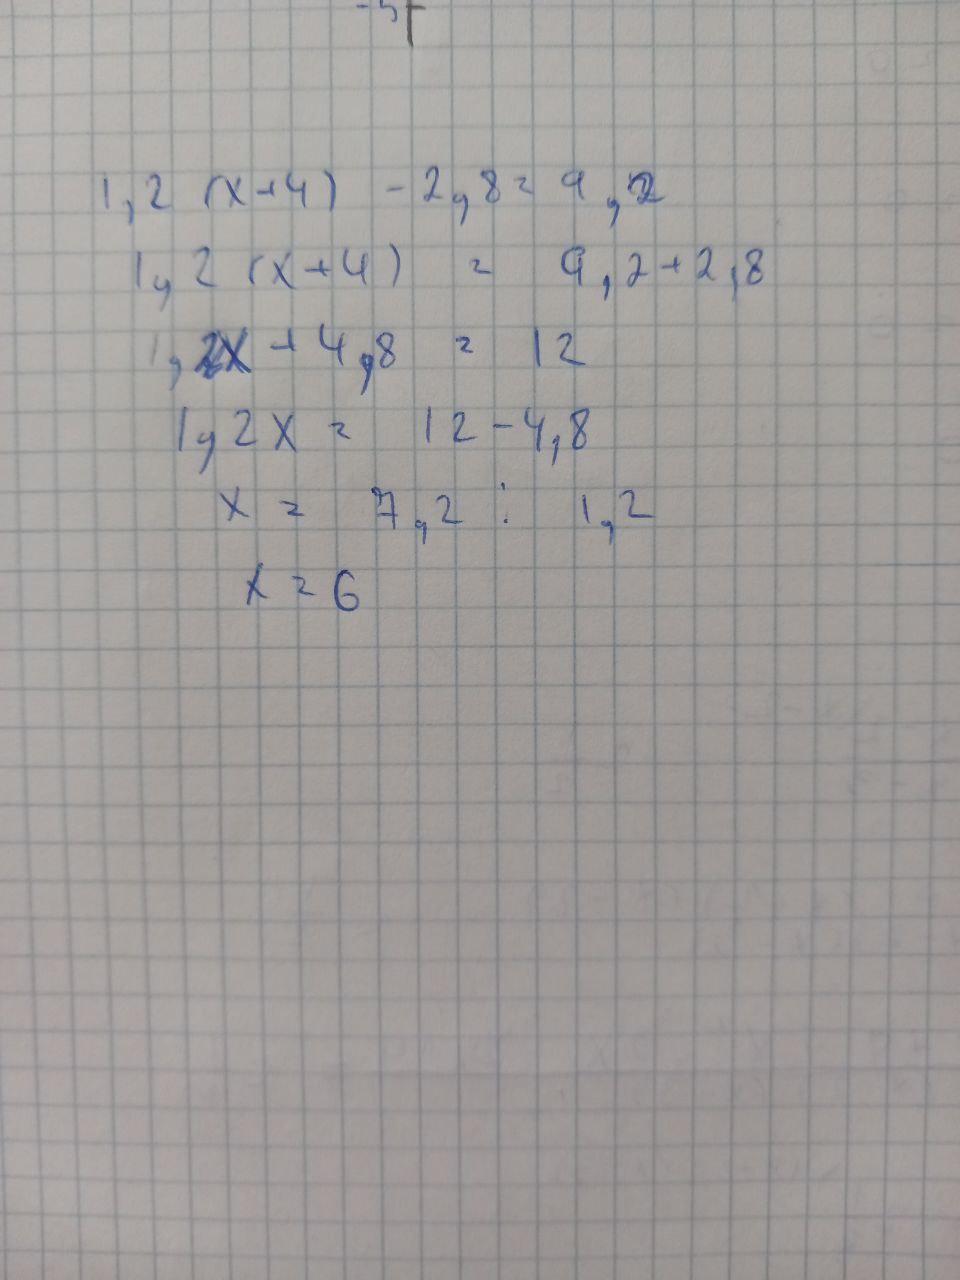 -5
1,2 (x+4) - 2,8 = 9,2
1,2 (x+4) = 9,2+2,8
1,2x + 4,8 = 12
1,2x = 12-4,8
x = 7,2 : 1,2
x = 6